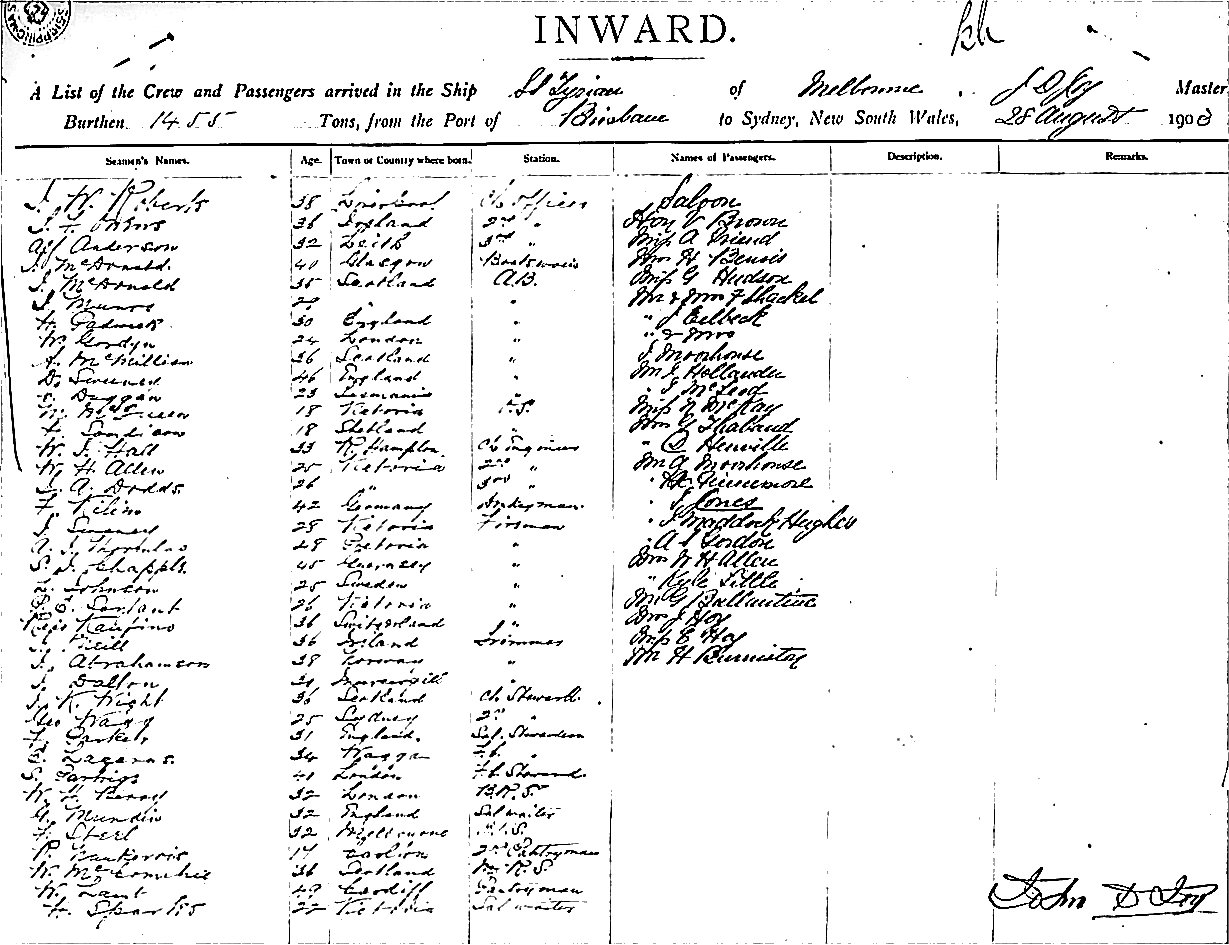 INWARD.
A List of the Crew and Passengers arrived in the Ship SS Tyrian of Melbourne, Master
Burthen 1455 Tons, from the Port of Brisbane to Sydney, New South Wales, 28 August 190
Seamen's Names. Age. Town or Country where born. Station. Names of Passengers. Description. Remarks.
J. W. Roberts 38 Liverpool Ch Officer Saloon
36 England 2nd " Hon V Brown
Alf Anderson 32 Leith 3rd " Miss A Friend
J. McDonald. 40 Glasgow Boatswain Mrs H
J. McDonald 35 Scotland A.B. Miss G Hudson
J. Munro " " Mr & Mrs F Shackel
H. 30 England " " J Eelbeck
W. Gordyn 24 London " " & Mrs
A. McMillian 36 Scotland " J Moorhouse
D. Sweeney 46 England " Mr J Hollander
Duggan 23 Tasmania " " J McLeod
18 Victoria O.S. Miss N McKay
Sandison 18 Shetland " Mrs G Thabaud
W. J. Hall 33 R.Hampton. Ch Engineer " Henville
W. H. Allen 25 Victoria 2nd " Mr A Moorhouse
A. Dodds. 26 " 3rd " " Finnemore
F. 42 Germany Donkeyman. " J Jones
J. Sweeney 28 Victoria Fireman " J Maddock Hughes
48 " " A S Gordon
S. J. Chapple. 45 Guernsey " Mrs W H Allen
Johnson 25 Sweden " " Kyle Little
26 Victoria " Mr G Ballantine
36 Switzerland " Mrs J Hoy
Neill 36 Ireland Trimmer Miss E Hoy
J. Abrahamson 38 Norway " Mr H
J. Dalton "
J. K. Wight 36 Scotland Ch. Steward.
Geo Wagg 25 Sydney 2nd "
Parker 31 England. Sal. Stewardess
E. Lazarus. 34 Wagga F.C. "
S. 41 London F.C. Steward.
W. H. Berry 32 London B.R.S.
A. Mundin 32 England Sal waiter
F. Sterl 32 Melbourne
R. 2nd Pantryman
W. McConchie 36 Scotland
W. 49 Cardiff Pantryman
H. Sparks 22 Victoria Sal waiter